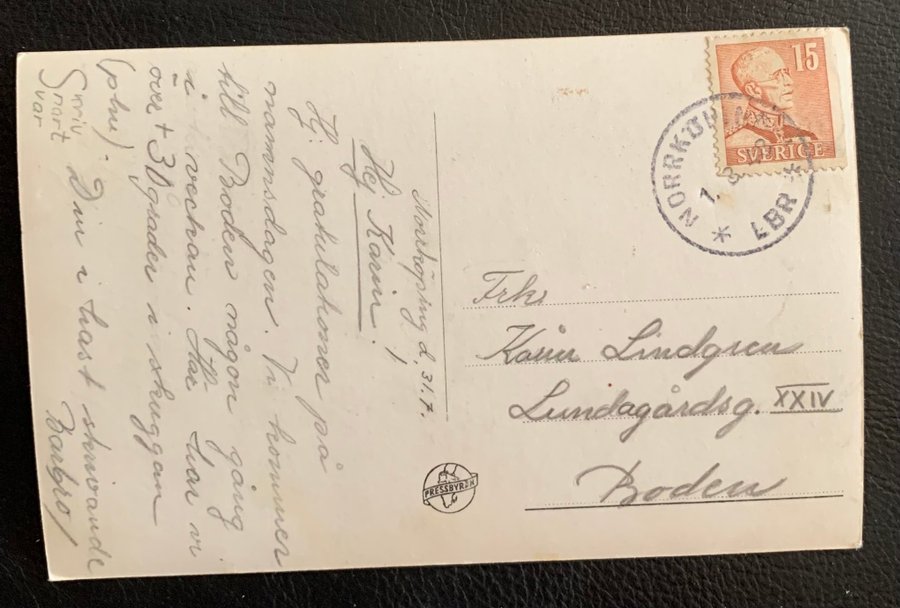 Norrköping d. 31.7.
Hej Karin!
Hj. gratulationer på
namnsdagen. Vi kommer
till Boden någon gång
i veckan. Här har vi
över + 30 grader i skuggan
(phu). Din i hast skrivande
Barbro/
Skriv
snart
var
15
SVERIGE
NORRKÖPING
1. 8.
* LBR *
Frkn
Karin Lindgren
Lundagårdsg. XXIV
Boden
PRESSBYRÅN